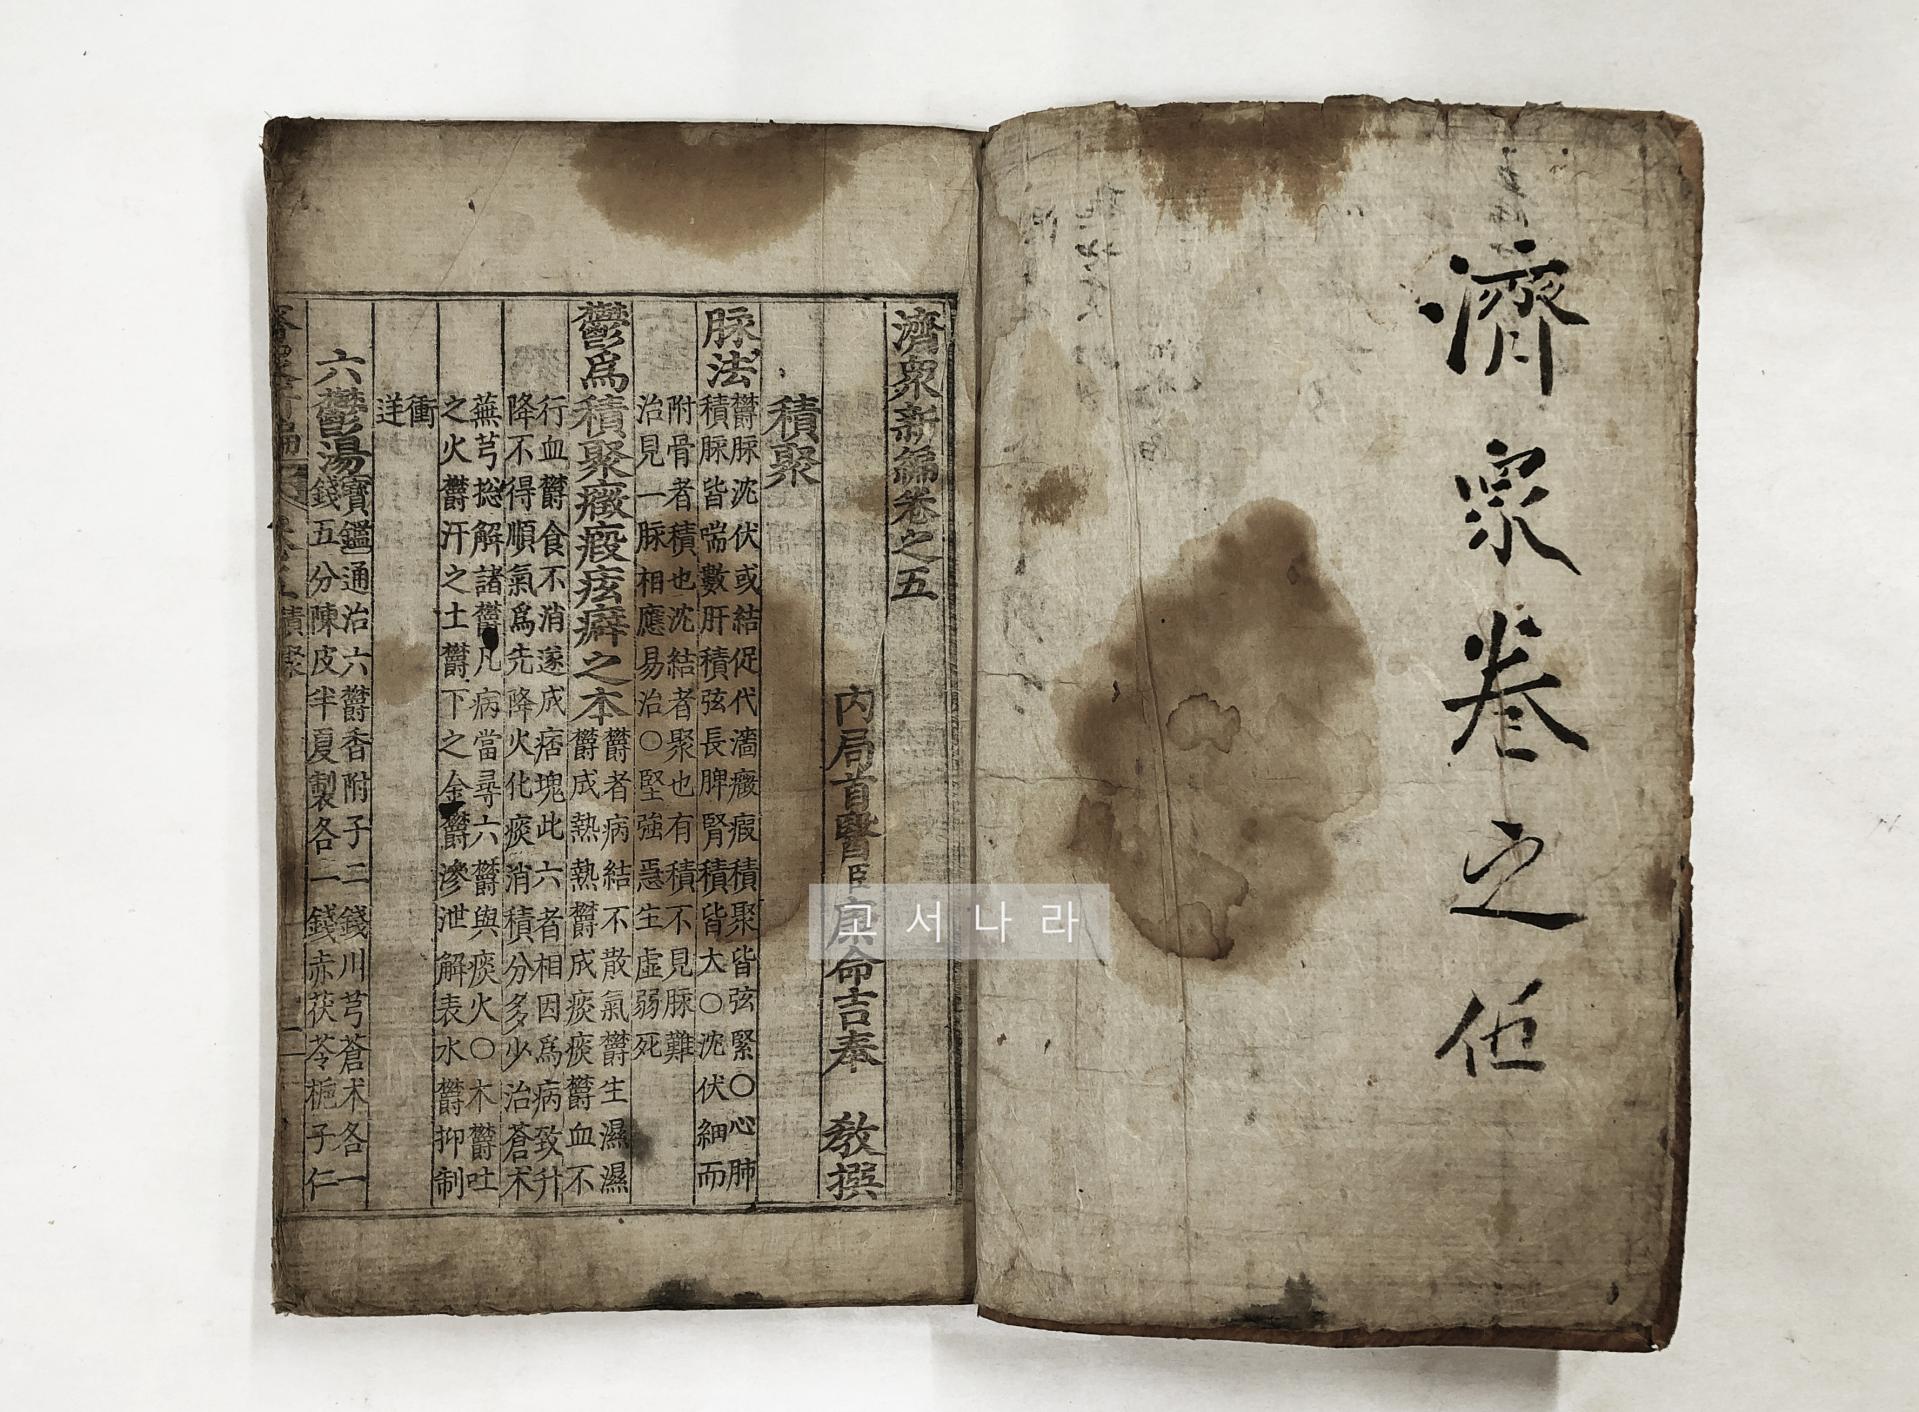 濟衆卷之伍
濟衆新編卷之五
內局首醫臣康命吉奉 敎撰
積聚
脉法欝脉沈伏或結促代濇癥瘕積聚皆弦緊○心肺
積脉皆喘數肝積弦長脾腎積皆大○沈伏細而
附骨者積也沈結者聚也有積不見脉難
治見一脉相應易治○堅強急生虛弱死
鬱爲積聚癥瘕痃癖之本欝者病結不散氣欝生濕濕
欝成熱熱欝成痰痰欝血不
行血欝食不消遂成痞塊此六者相因爲病致升
降不得順氣爲先降火化痰消積分多少治蒼朮
蕪芎摠解諸欝凡病當尋六欝與痰火○木欝吐
之火欝汗之土欝下之金欝滲泄解表水欝抑制
衝
逆
六鬱湯寶鑑通治六欝香附子二錢川芎蒼朮各一
錢五分陳皮半夏製各一錢赤茯苓梔子仁
積聚
고서나라